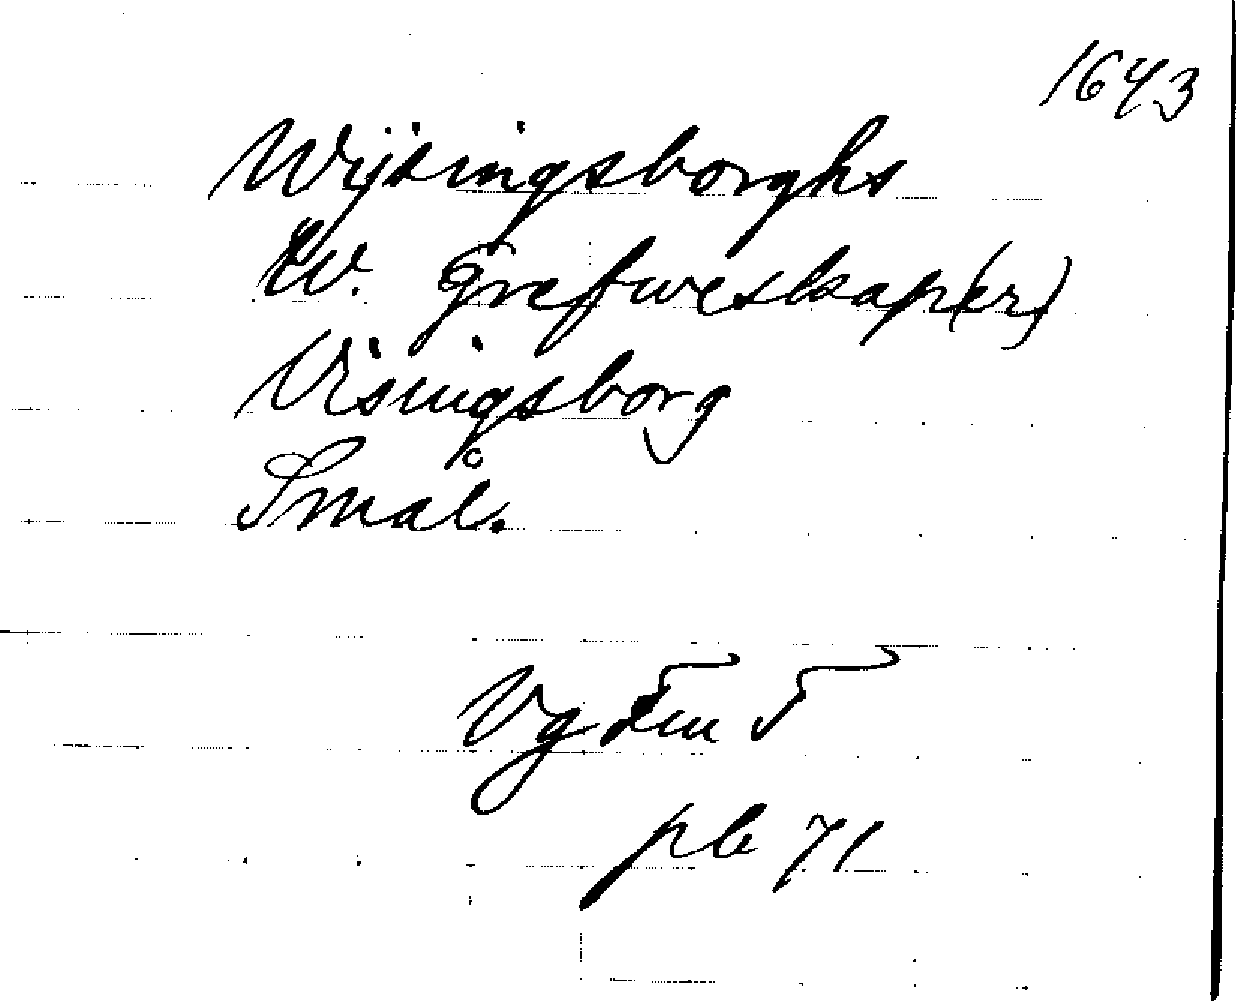 1643
Wijsingsborghs
Kw. Grefweskap(er)
Visingsborg
Smål.
Vg Fm 5
pb 71